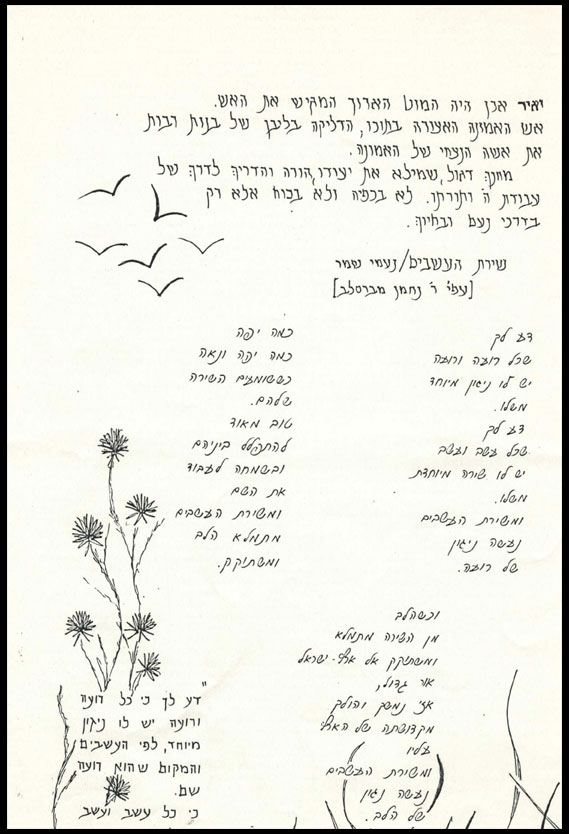 יאיר אכן היה המוט הארוך המקיש את האש.
אש האמונה האצורה בתוכו, הדליקה בליבן של בנות רבות
את אשה הנצחי של האמונה.
מחנך דגול, שמילא את יעודו, הורה והדריך לדרך של
עבודת ה' ותורתו. לא בכפיה ולא בכוח אלא רק
בדרכי נעם ובחיוך.
שירת העשבים/נעמי שמר
[עפ"י ר' נחמן מברסלב]
דע לך
שכל רועה ורועה
יש לו ניגון מיוחד
משלו.
דע לך
שכל עשב ועשב
יש לו שירה מיוחדת
משלו.
ומשירת העשבים
נעשה ניגון
של רועה.
כמה יפה
כמה יפה ונאה
כששומעים השירה
שלהם.
טוב מאוד
להתפלל ביניהם
ובשמחה לעבוד
את השם
ומשירת העשבים
מתמלא הלב
ומשתוקק.
וכשהלב
מן השירה מתמלא
ומשתוקק אל ארץ-ישראל
אור גדול,
אזי נמשך והולך
מקדושתה של הארץ
עליו
ומשירת העשבים
נעשה נגון
של הלב.
"דע לך כי כל רועה
ורועה יש לו ניגון
מיוחד, לפי העשבים
והמקום שהוא רועה
שם.
כי כל עשב ועשב